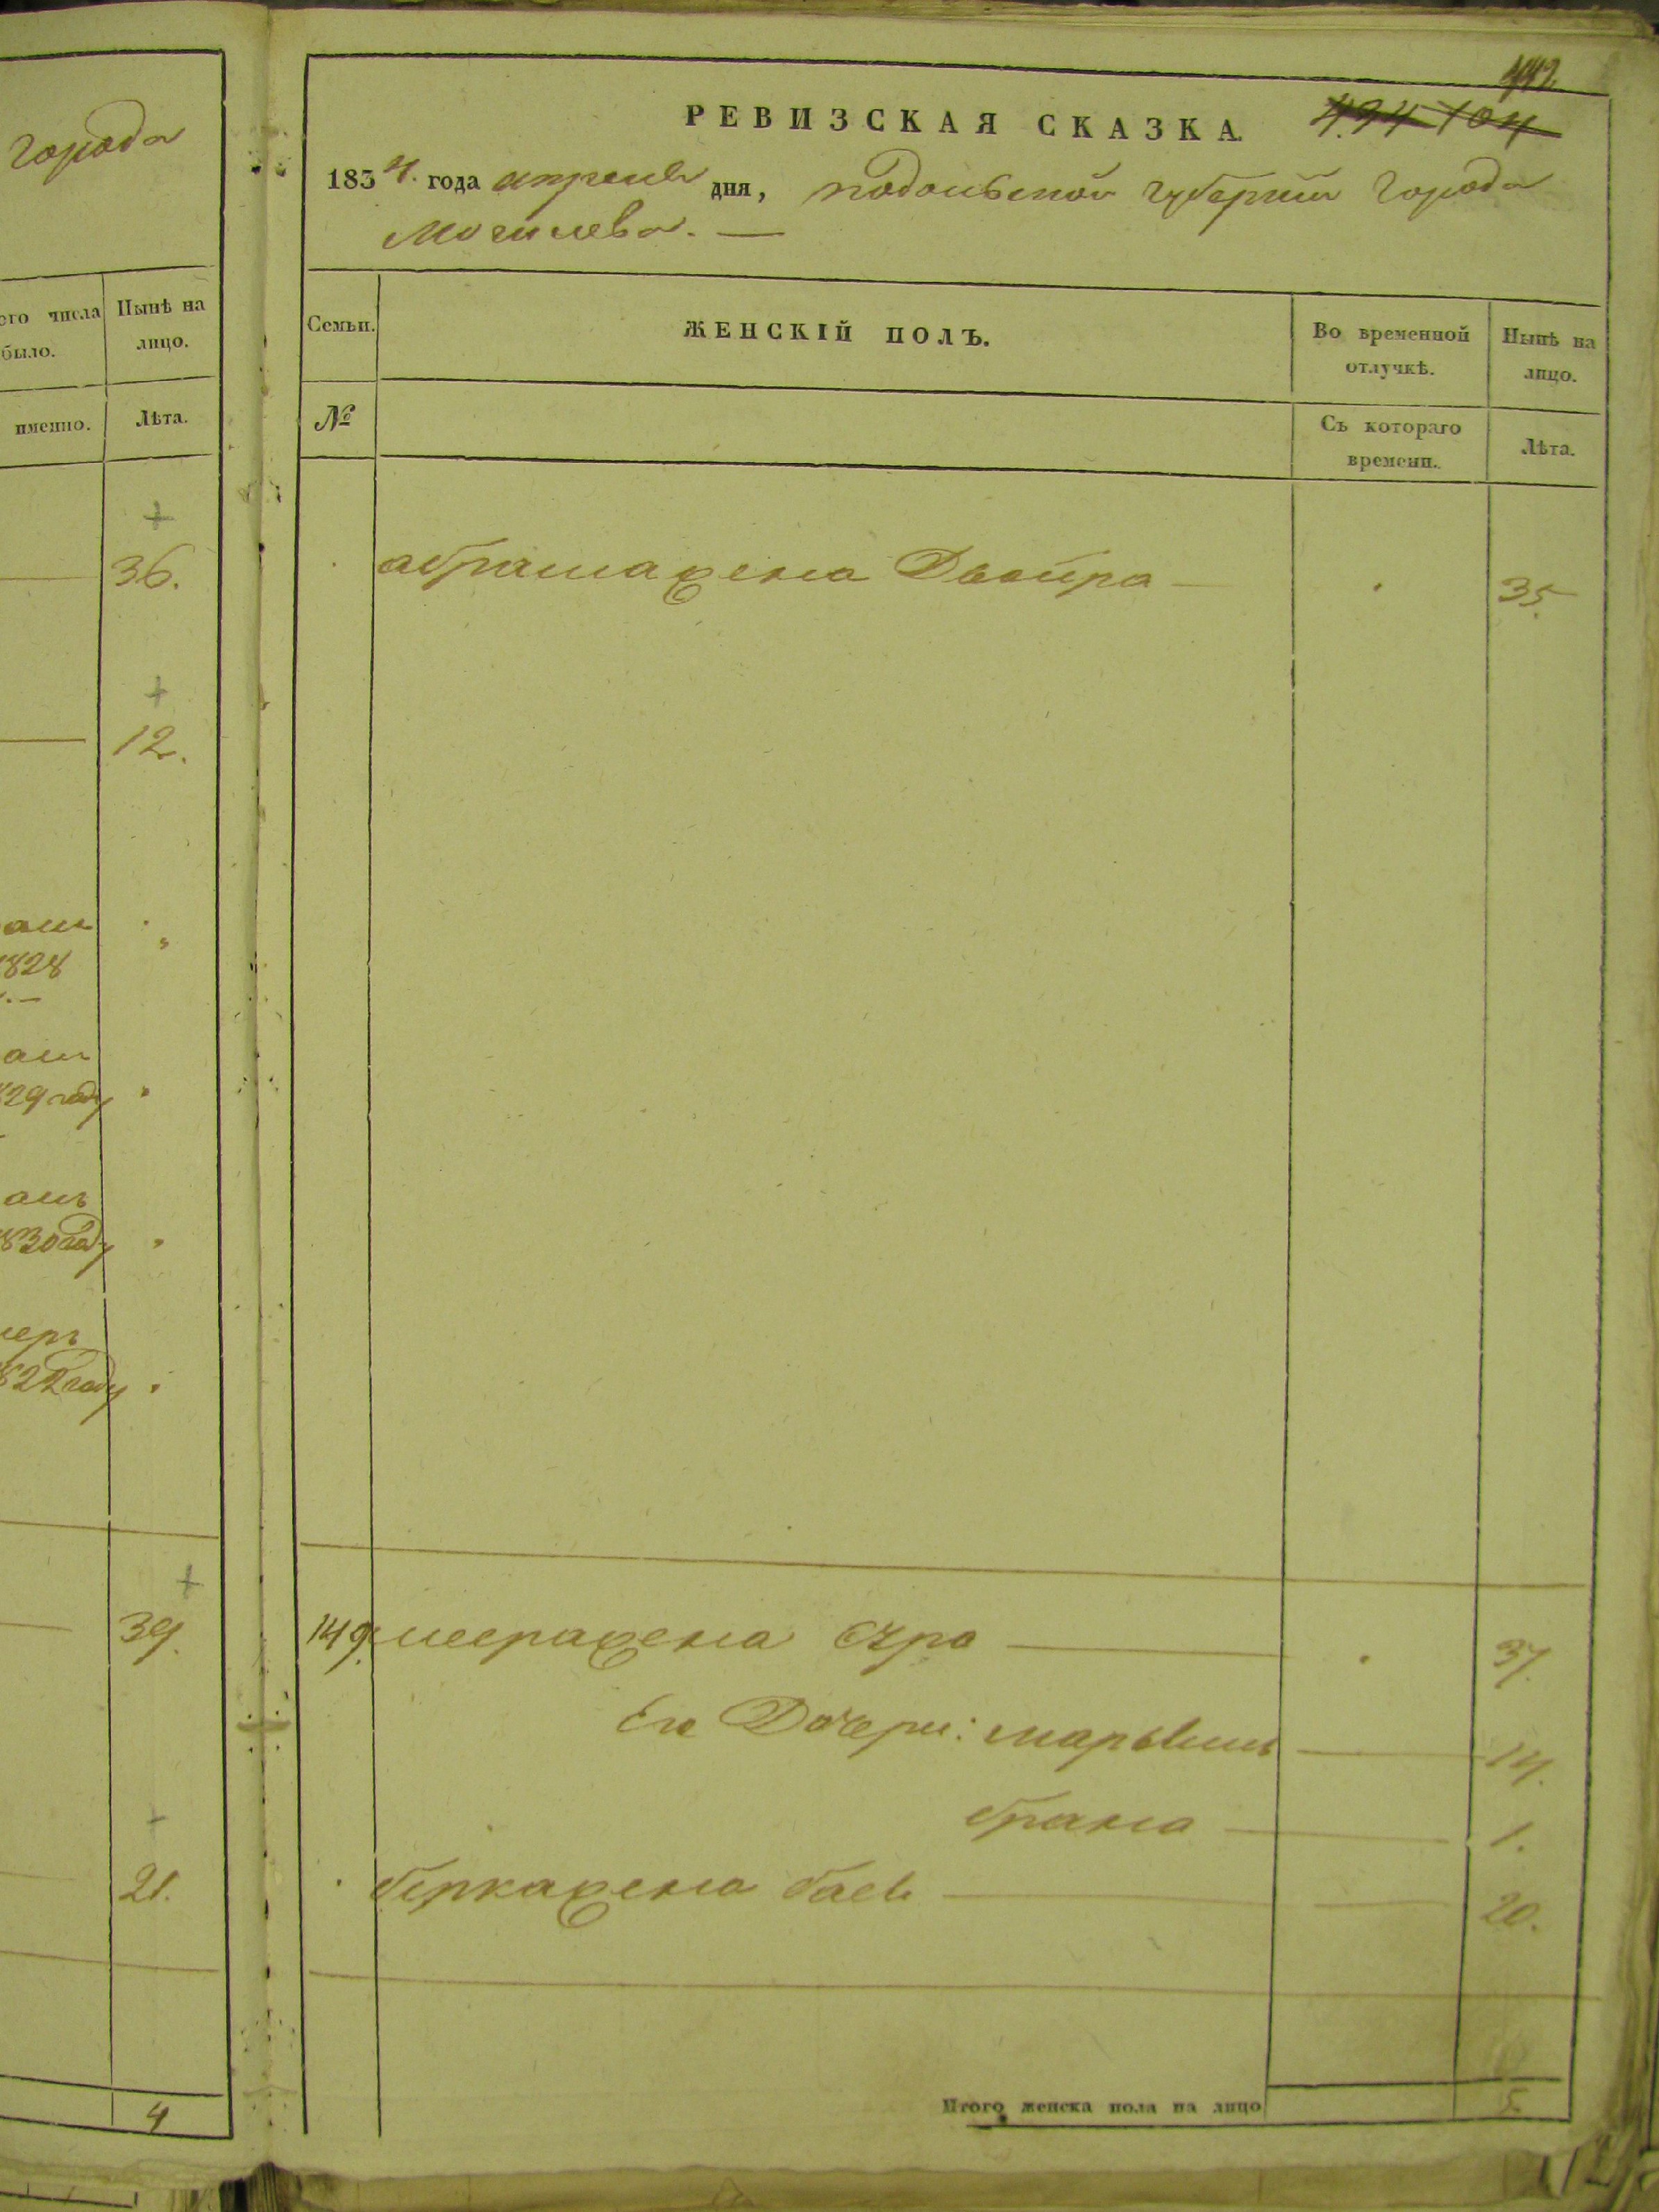 города
его числа
было.
Нынѣ на
лицо.
именно.
Лѣта.
36.
12.
1828
829 году
1830 году
822 году
39.
21.
4
442.
РЕВИЗСКАЯ СКАЗКА.
494 104
1834. года апреля дня, подольской губернии города
Могилева. —
Семьи.
ЖЕНСКІЙ ПОЛЪ.
Во временной
отлучкѣ.
Нынѣ на
лицо.
№
Съ котораго
времени.
Лѣта.
абрама жена Двойра — 35.
149. жена — 37.
Его Дочери: марьямъ — 14.
брана — 1.
берка жена бася — 20.
Итого женска пола на лицо 5.